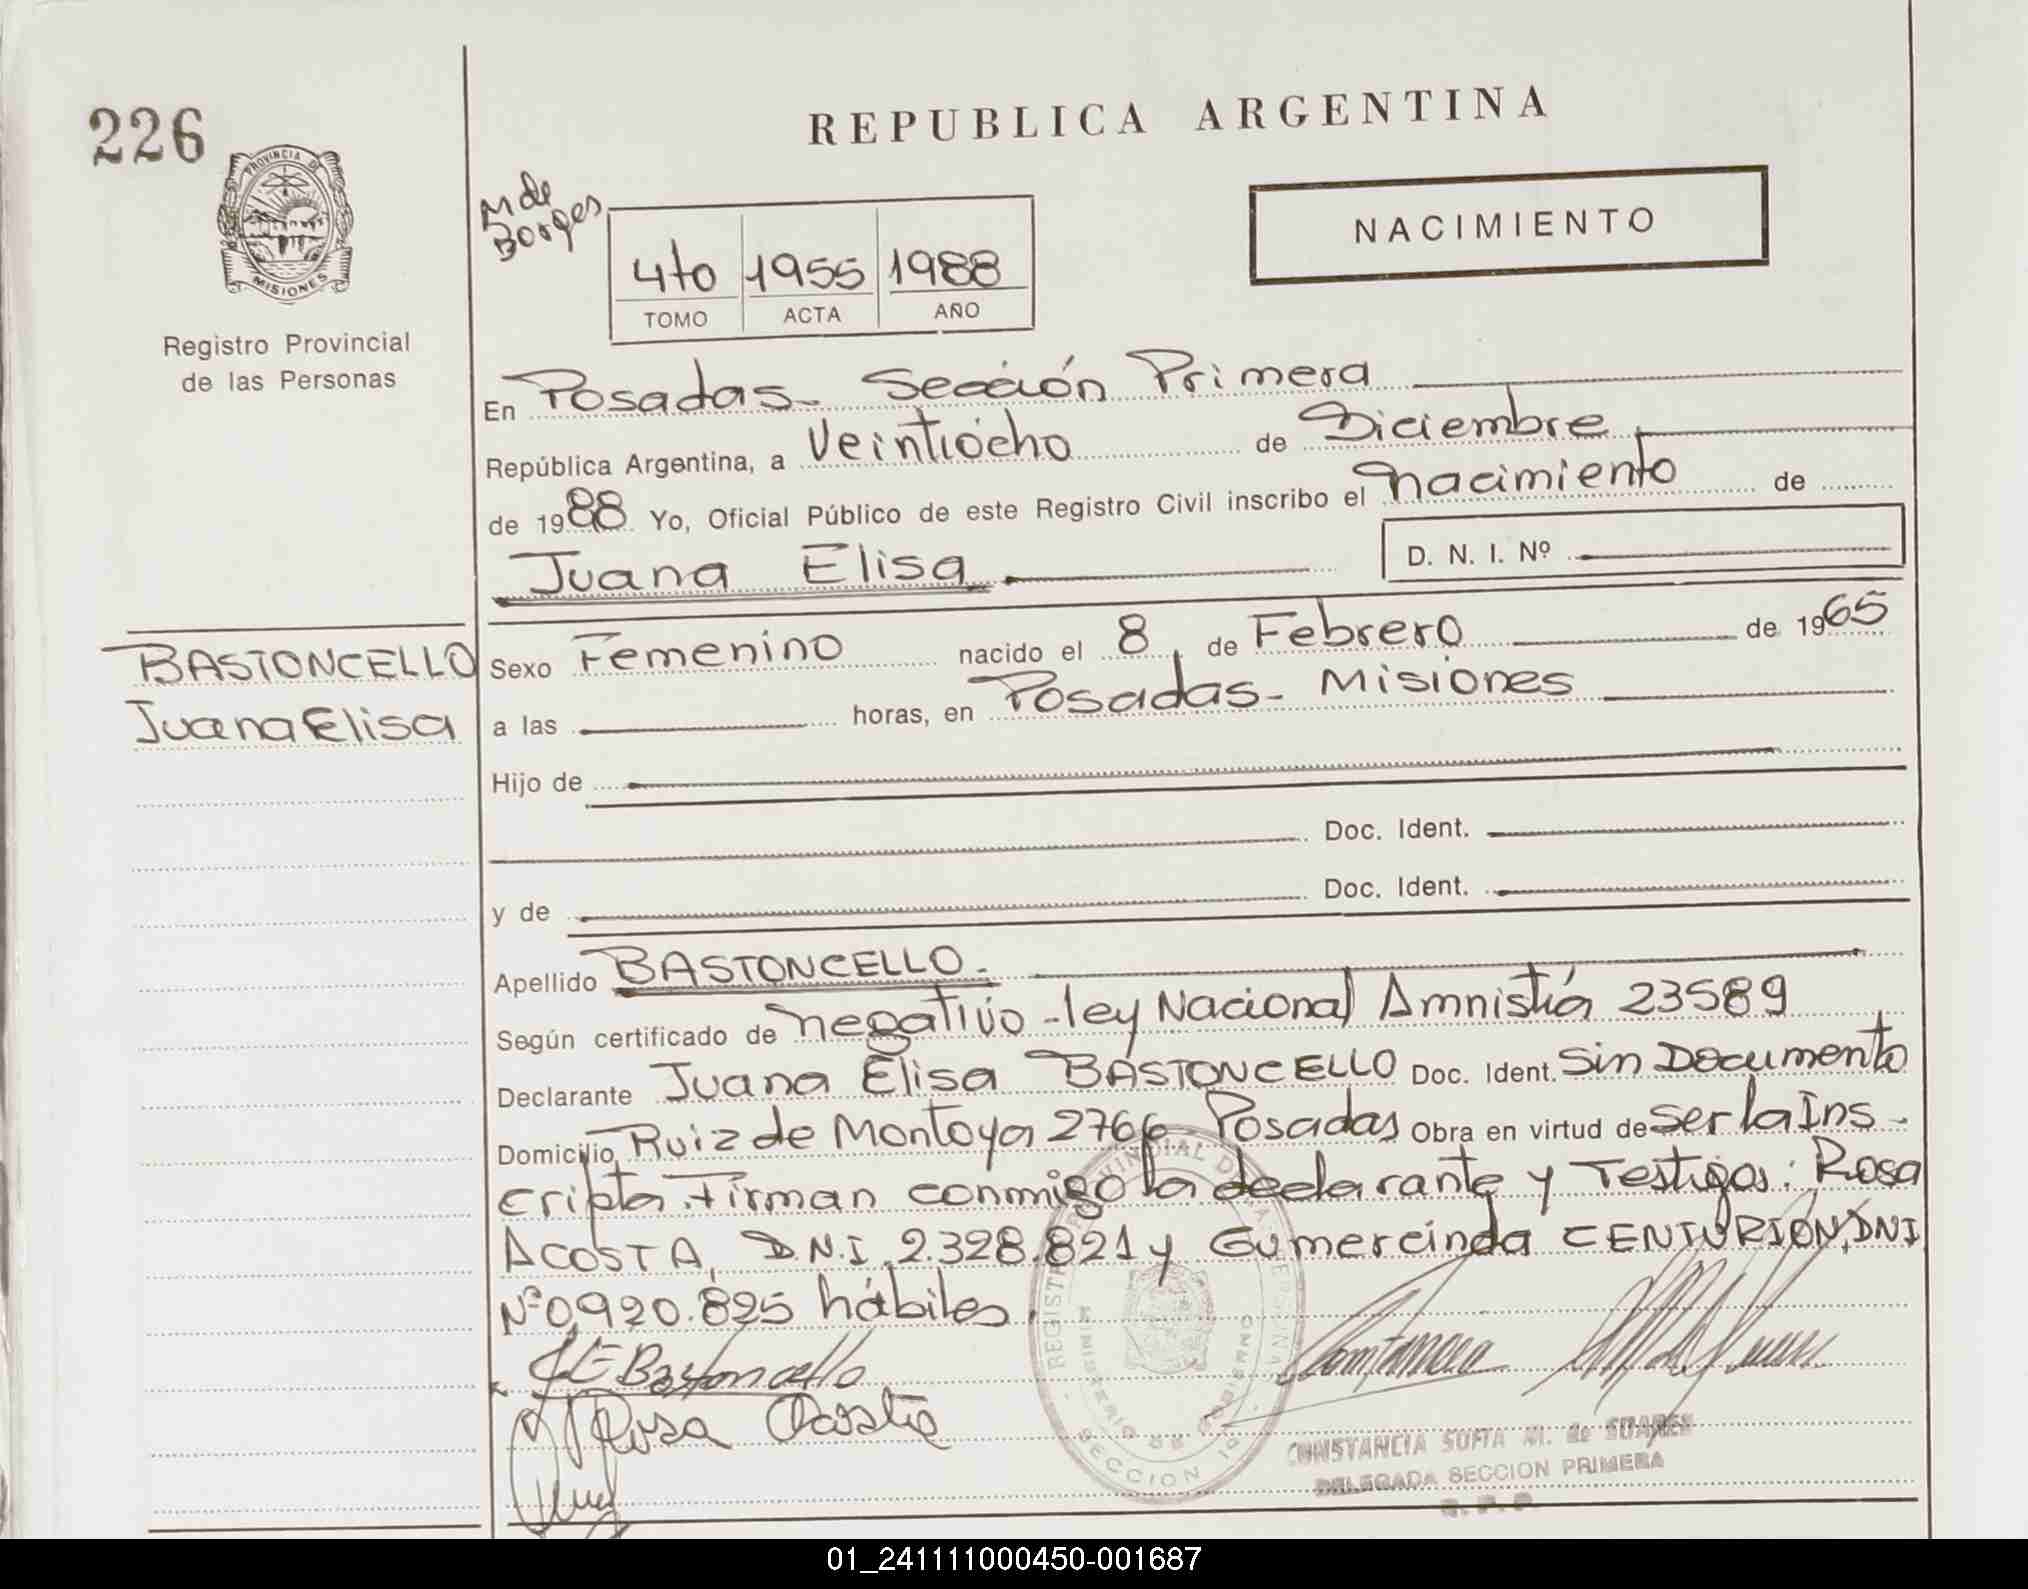 226
REPUBLICA ARGENTINA
PROVINCIA DE
MISIONES
M de
Borges
NACIMIENTO
4to 1955 1988
TOMO ACTA AÑO
Registro Provincial
de las Personas
En Posadas - Sección Primera
República Argentina, a Veintiocho de Diciembre
de 1988 Yo, Oficial Público de este Registro Civil inscribo el nacimiento de
Juana Elisa D. N. I. Nº
BASTONCELLO
Juana Elisa
Sexo Femenino nacido el 8 de Febrero de 1965
a las horas, en Posadas - Misiones
Hijo de
Doc. Ident.
y de Doc. Ident.
Apellido BASTONCELLO.-
Según certificado de negativo - ley Nacional Amnistía 23589
Declarante Juana Elisa BASTONCELLO Doc. Ident. Sin Documento
Domicilio Ruiz de Montoya 2766 Posadas Obra en virtud de ser la Ins-
cripta. Firman conmigo la declarante y Testigos: Rosa
ACOSTA, D.N.I. 2.328.821 y Gumercinda CENTURION, DNI
Nº 0,920.825 hábiles.
JE Bastoncello
Rosa Acosta
CONSTANCIA SOFIA M. de SUAREZ
DELEGADA SECCION PRIMERA
R. P. P.
01_241111000450-001687